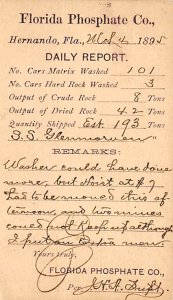 Florida Phosphate Co.,
Hernando, Fla., 1895
DAILY REPORT.
No. Cars Matrix Washed 101
No. Cars Hard Rock Washed 3
Output of Crude Rock 8 Tons
Output of Dried Rock 42 Tons
Quantity Shipped Est. 193 Tons
S.S. Glenmorven
REMARKS:
Washer could have done
more, but Hoist at # 7
had to be moved this
and two mines
could not Keep up although
I put on extra men.
Yours truly,
FLORIDA PHOSPHATE CO.,
Per